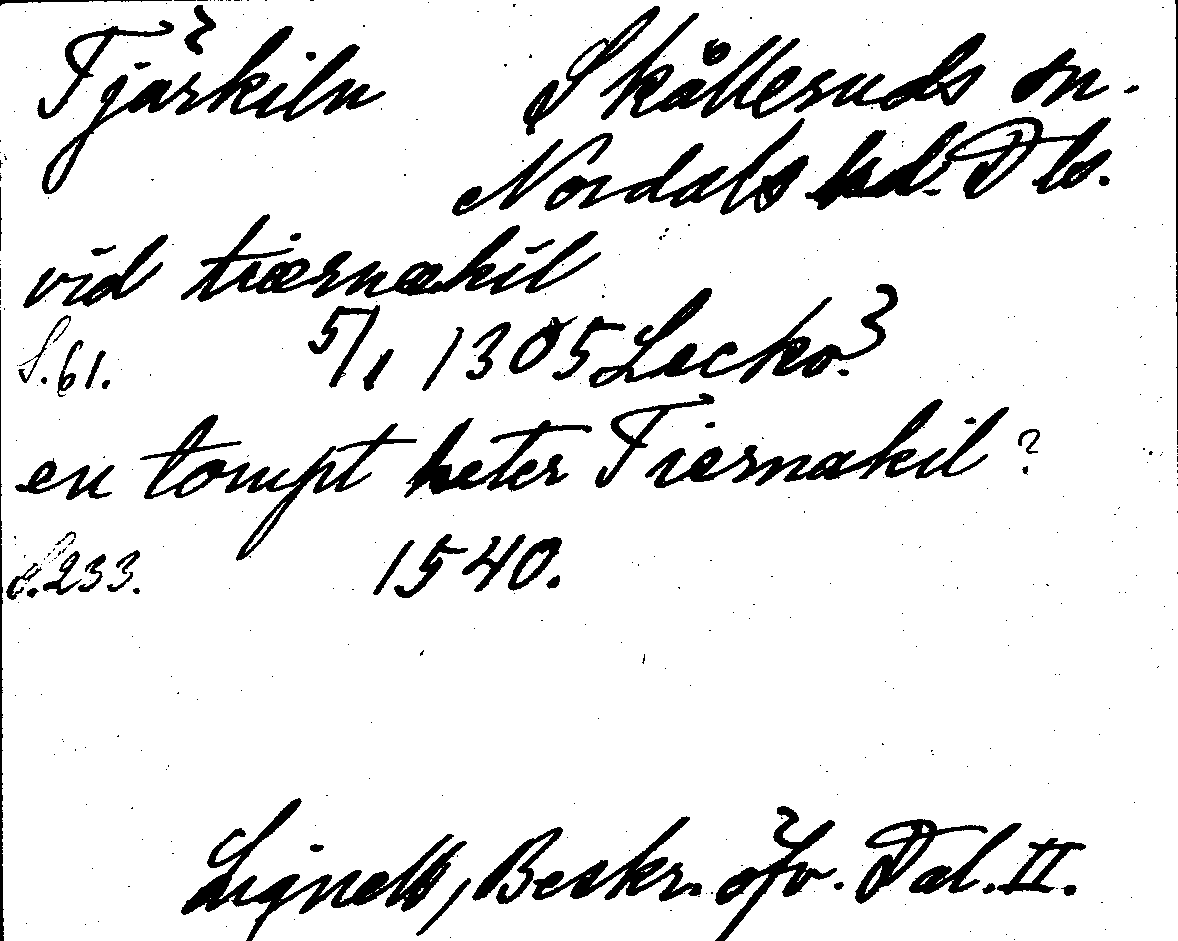 Tjärkiln Skålleruds sn.
Nordals hd. Dls.
vid tiærnækil
S. 61. 5/1 1305 Lecko?
en tompt heter Tiernakil ?
S. 233. 1540.
Lignell, Beskr. öfv. Dal. II.